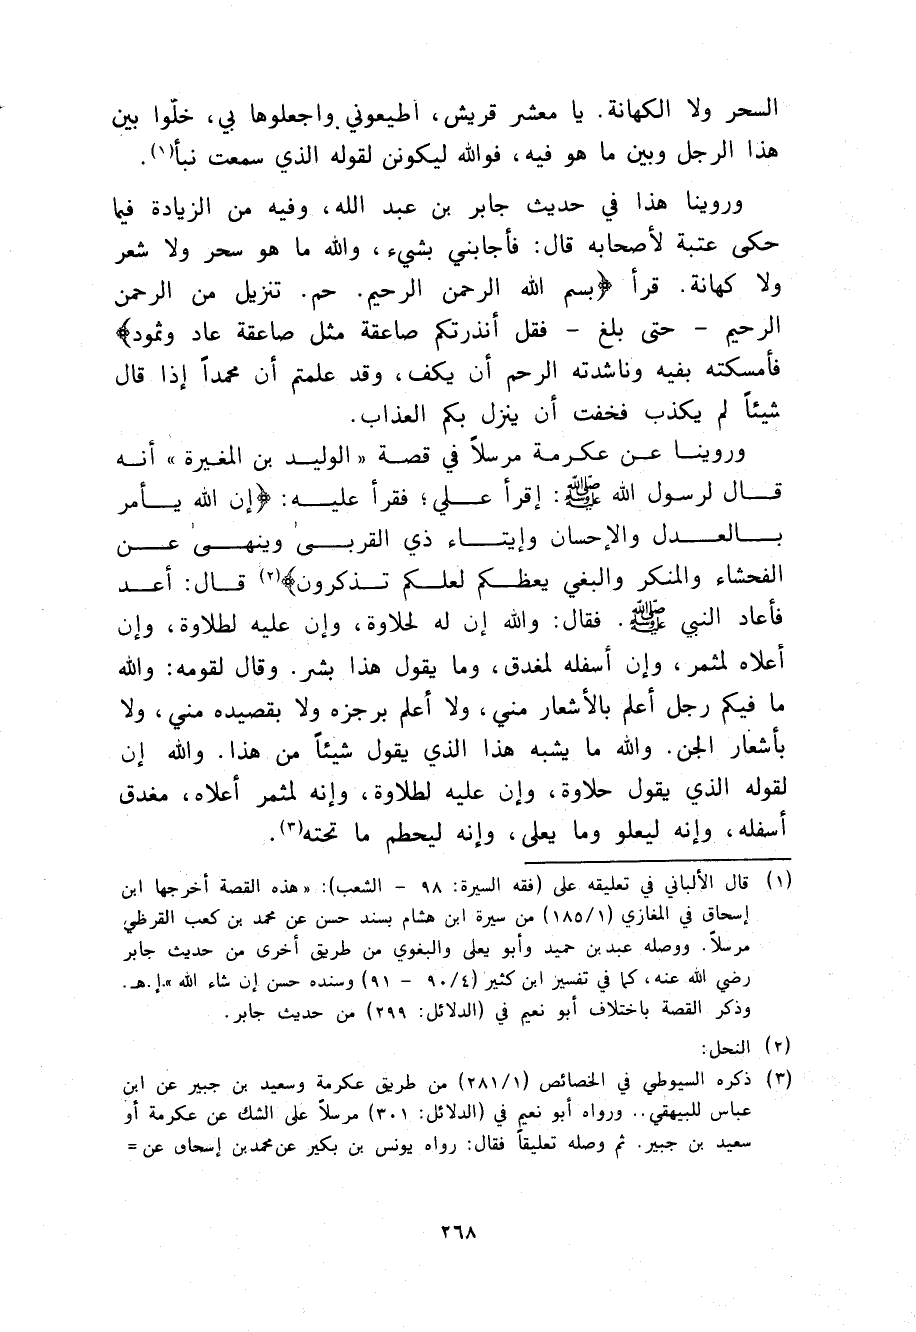 السحر ولا الكهانة. يا معشر قريش، أطيعوني واجعلوها بي، خلّوا بين
هذا الرجل وبين ما هو فيه، فوالله ليكونن لقوله الذي سمعت نبأ(١).
وروينا هذا في حديث جابر بن عبد الله، وفيه من الزيادة فيما
حكى عتبة لأصحابه قال: فأجابني بشيء، والله ما هو سحر ولا شعر
ولا كهانة. قرأ ﴿بسم الله الرحمن الرحيم. حم. تنزيل من الرحمن
الرحيم - حتى بلغ - فقل أنذرتكم صاعقة مثل صاعقة عاد وثمود﴾
فأمسكته بفيه وناشدته الرحم أن يكف، وقد علمتم أن محمداً إذا قال
شيئاً لم يكذب فخفت أن ينزل بكم العذاب.
وروينا عن عكرمة مرسلاً في قصة «الوليد بن المغيرة» أنه
قال لرسول الله ﷺ: إقرأ علي؛ فقرأ عليه: ﴿إن الله يأمر
بالعدل والإحسان وإيتاء ذي القربى وينهى عن
الفحشاء والمنكر والبغي يعظكم لعلكم تذكرون﴾(٢) قال: أعد
فأعاد النبي ﷺ. فقال: والله إن له لحلاوة، وإن عليه لطلاوة، وإن
أعلاه لمثمر، وإن أسفله لمغدق، وما يقول هذا بشر. وقال لقومه: والله
ما فيكم رجل أعلم بالأشعار مني، ولا أعلم برجزه ولا بقصيده مني، ولا
بأشعار الجن. والله ما يشبه هذا الذي يقول شيئاً من هذا. والله إن
لقوله الذي يقول حلاوة، وإن عليه لطلاوة، وإنه لمثمر أعلاه، مغدق
أسفله، وإنه ليعلو وما يعلى، وإنه ليحطم ما تحته(٣).
(١) قال الألباني في تعليقه على (فقه السيرة: ٩٨ - الشعب): «هذه القصة أخرجها ابن
إسحاق في المغازي (١٨٥/١) من سيرة ابن هشام بسند حسن عن محمد بن كعب القرظي
مرسلاً. ووصله عبد بن حميد وأبو يعلى والبغوي من طريق أخرى من حديث جابر
رضي الله عنه، كما في تفسير ابن كثير (٩٠/٤ - ٩١) وسنده حسن إن شاء الله».إ.هـ.
وذكر القصة باختلاف أبو نعيم في (الدلائل: ٢٩٩) من حديث جابر.
(٢) النحل:
(٣) ذكره السيوطي في الخصائص (٢٨١/١) من طريق عكرمة وسعيد بن جبير عن ابن
عباس للبيهقي.. ورواه أبو نعيم في (الدلائل: ٣٠١) مرسلاً على الشك عن عكرمة أو
سعيد بن جبير. ثم وصله تعليقاً فقال: رواه يونس بن بكير عن محمد بن إسحاق عن =
٢٦٨